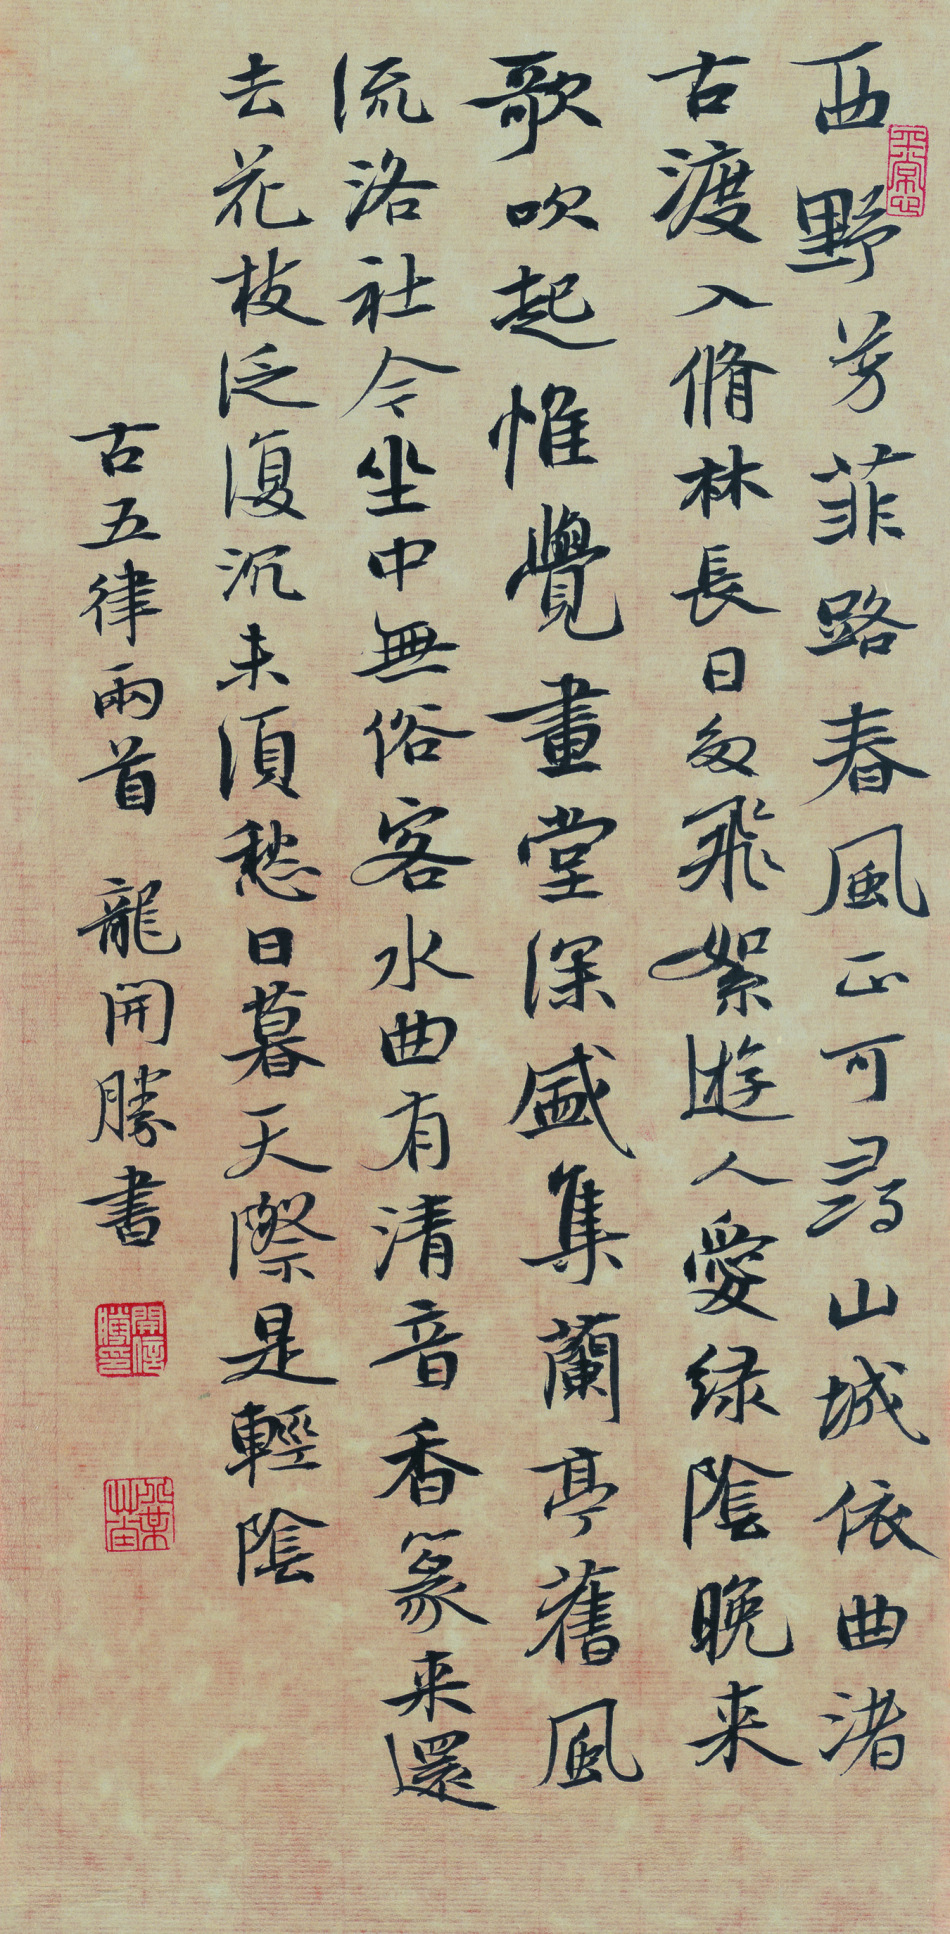 西野芳菲路春風正可尋山城依曲渚
古渡入脩林長日多飛絮遊人愛绿陰晚来
歌吹起惟覺畫堂深盛集蘭亭舊風
流洛社今坐中無俗客水曲有清音香篆来還
去花枝泛復沉未須愁日暮天際是輕陰
古五律兩首 龍開勝書
平常心
開勝印信